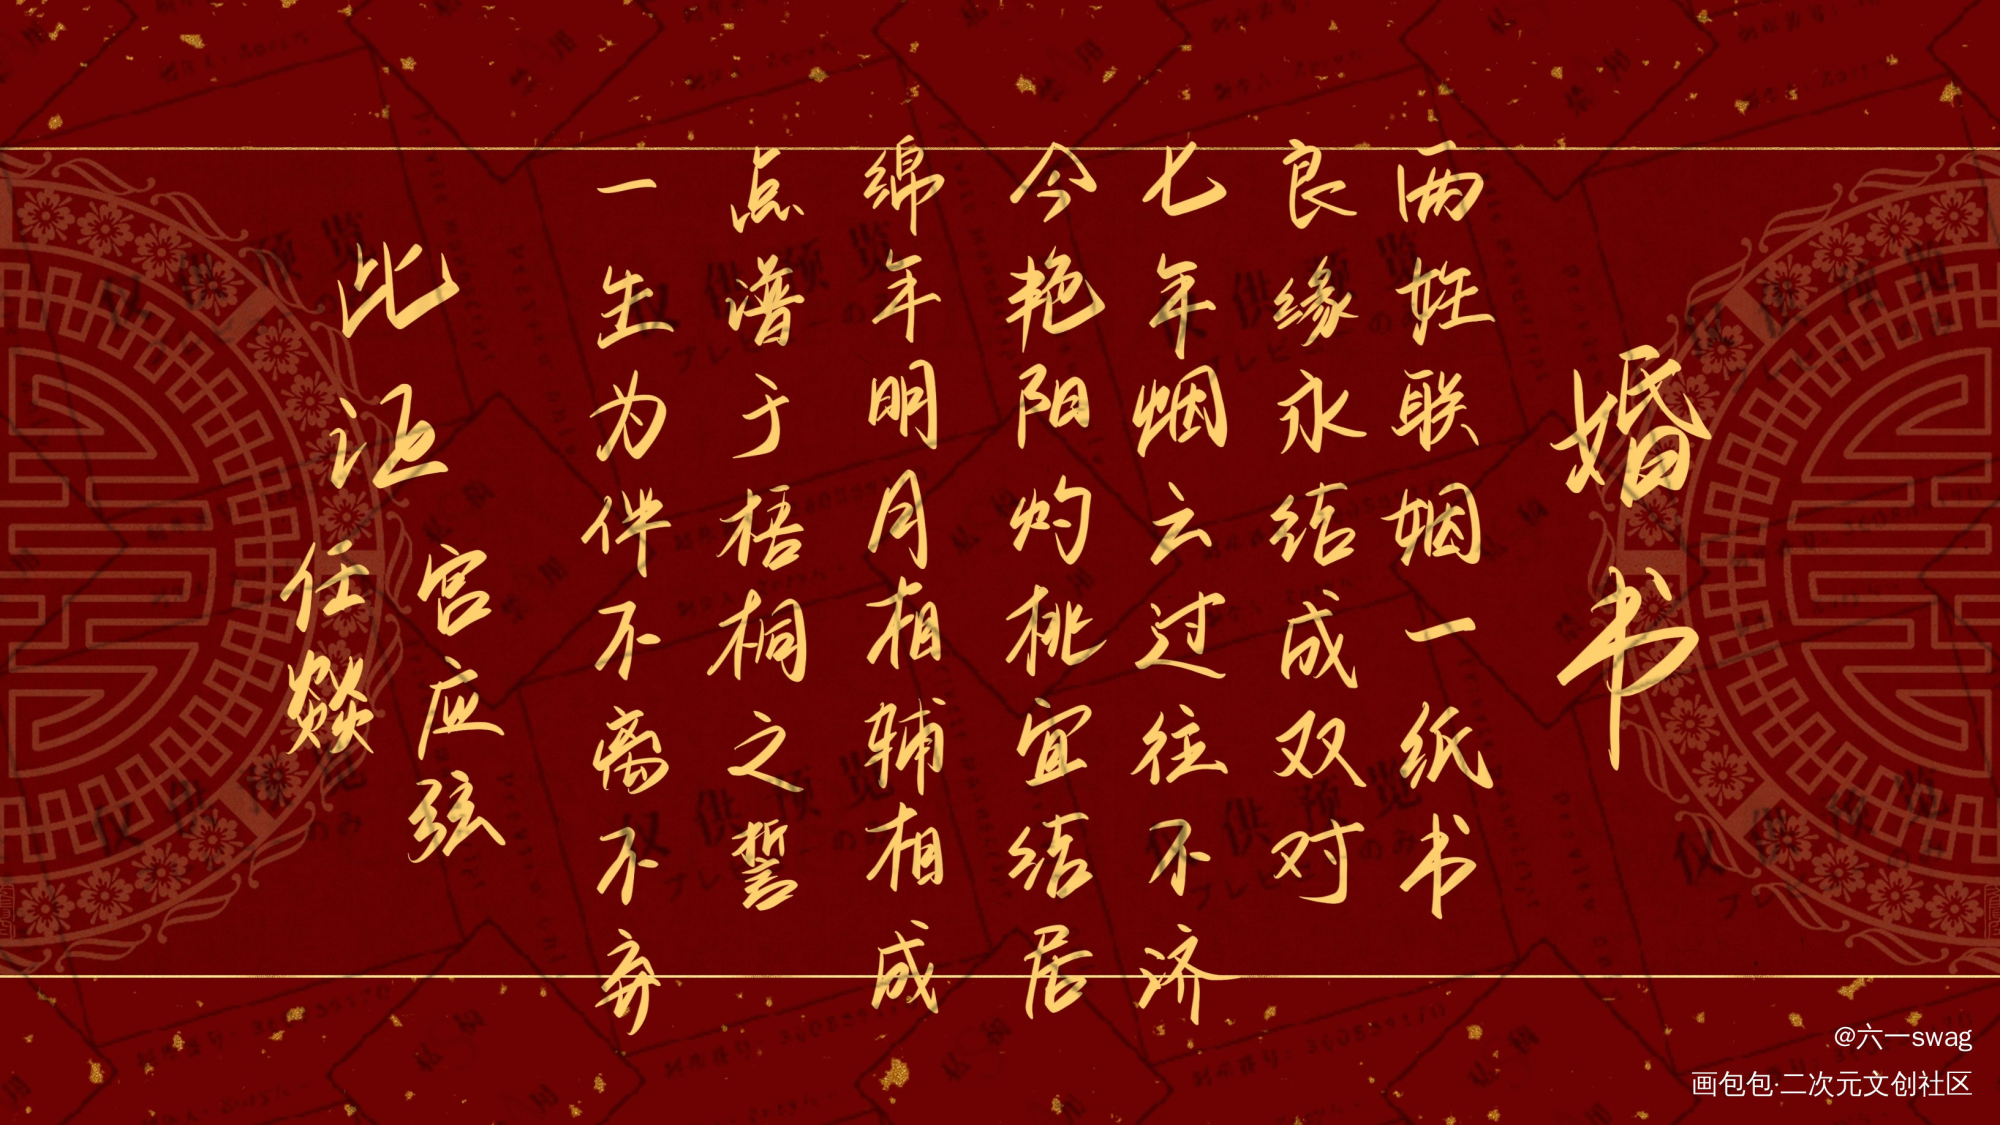 婚书
两姓联姻一纸书
良缘永结成双对
七年烟云过往不济
今艳阳灼桃宜结居
绵年明月相辅相成
点谱于梧桐之誓
一生为伴不离不弃
此证
宫应弦
任燚
@六一swag
画包包·二次元文创社区
仅供预览